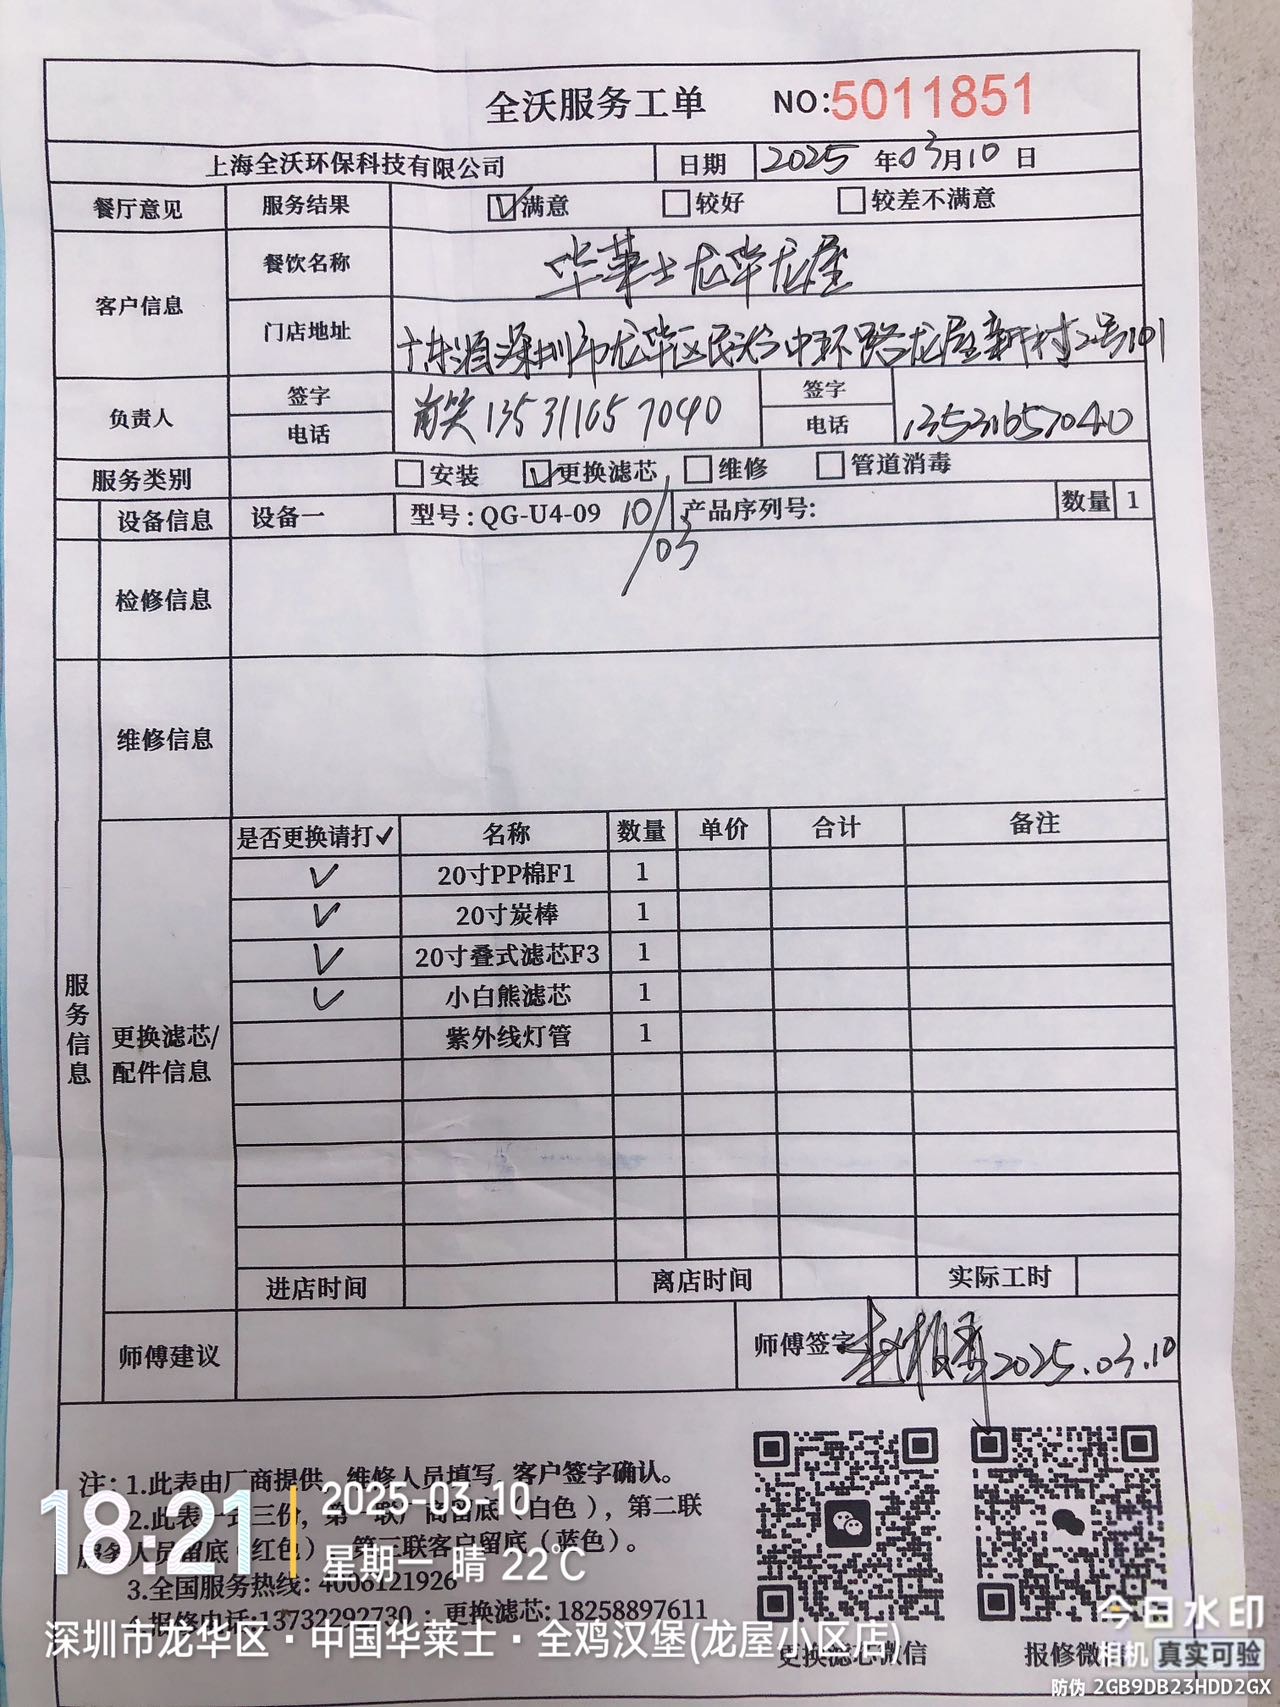 全沃服务工单 NO:5011851
上海全沃环保科技有限公司 日期 2025 年 03 月 10 日
餐厅意见 服务结果 ☑满意 □较好 □较差不满意
客户信息 餐饮名称 华莱士龙华龙屋
门店地址 广东源深圳市龙华区民治中环路龙屋新村2号101
负责人 签字 电话 13531657040 签字 电话 13531657040
服务类别 □安装 ☑更换滤芯 □维修 □管道消毒
设备信息 设备一 型号：QG-U4-09 10/03 产品序列号: 数量 1
检修信息
维修信息
服务信息
更换滤芯/配件信息
是否更换请打✓ 名称 数量 单价 合计 备注
✓ 20寸PP棉F1 1
✓ 20寸炭棒 1
✓ 20寸叠式滤芯F3 1
✓ 小白熊滤芯 1
紫外线灯管 1
进店时间 离店时间 实际工时
师傅建议 师傅签字 2025.03.10
注：1.此表由厂商提供 维修人员填写 客户签字确认。
2.此表一式三份，第一联厂商留底（白色），第二联
服务人员留底（红色） 第三联客户留底（蓝色）。
3.全国服务热线：4008121926
4.报修电话:13732292730 ；更换滤芯: 18258897611
更换滤芯微信 报修微信
18:21
2025-03-10
星期一 晴 22℃
深圳市龙华区·中国华莱士·全鸡汉堡(龙屋小区店)
今日水印
相机 真实可验
防伪 2GB9DB23HDD2GX